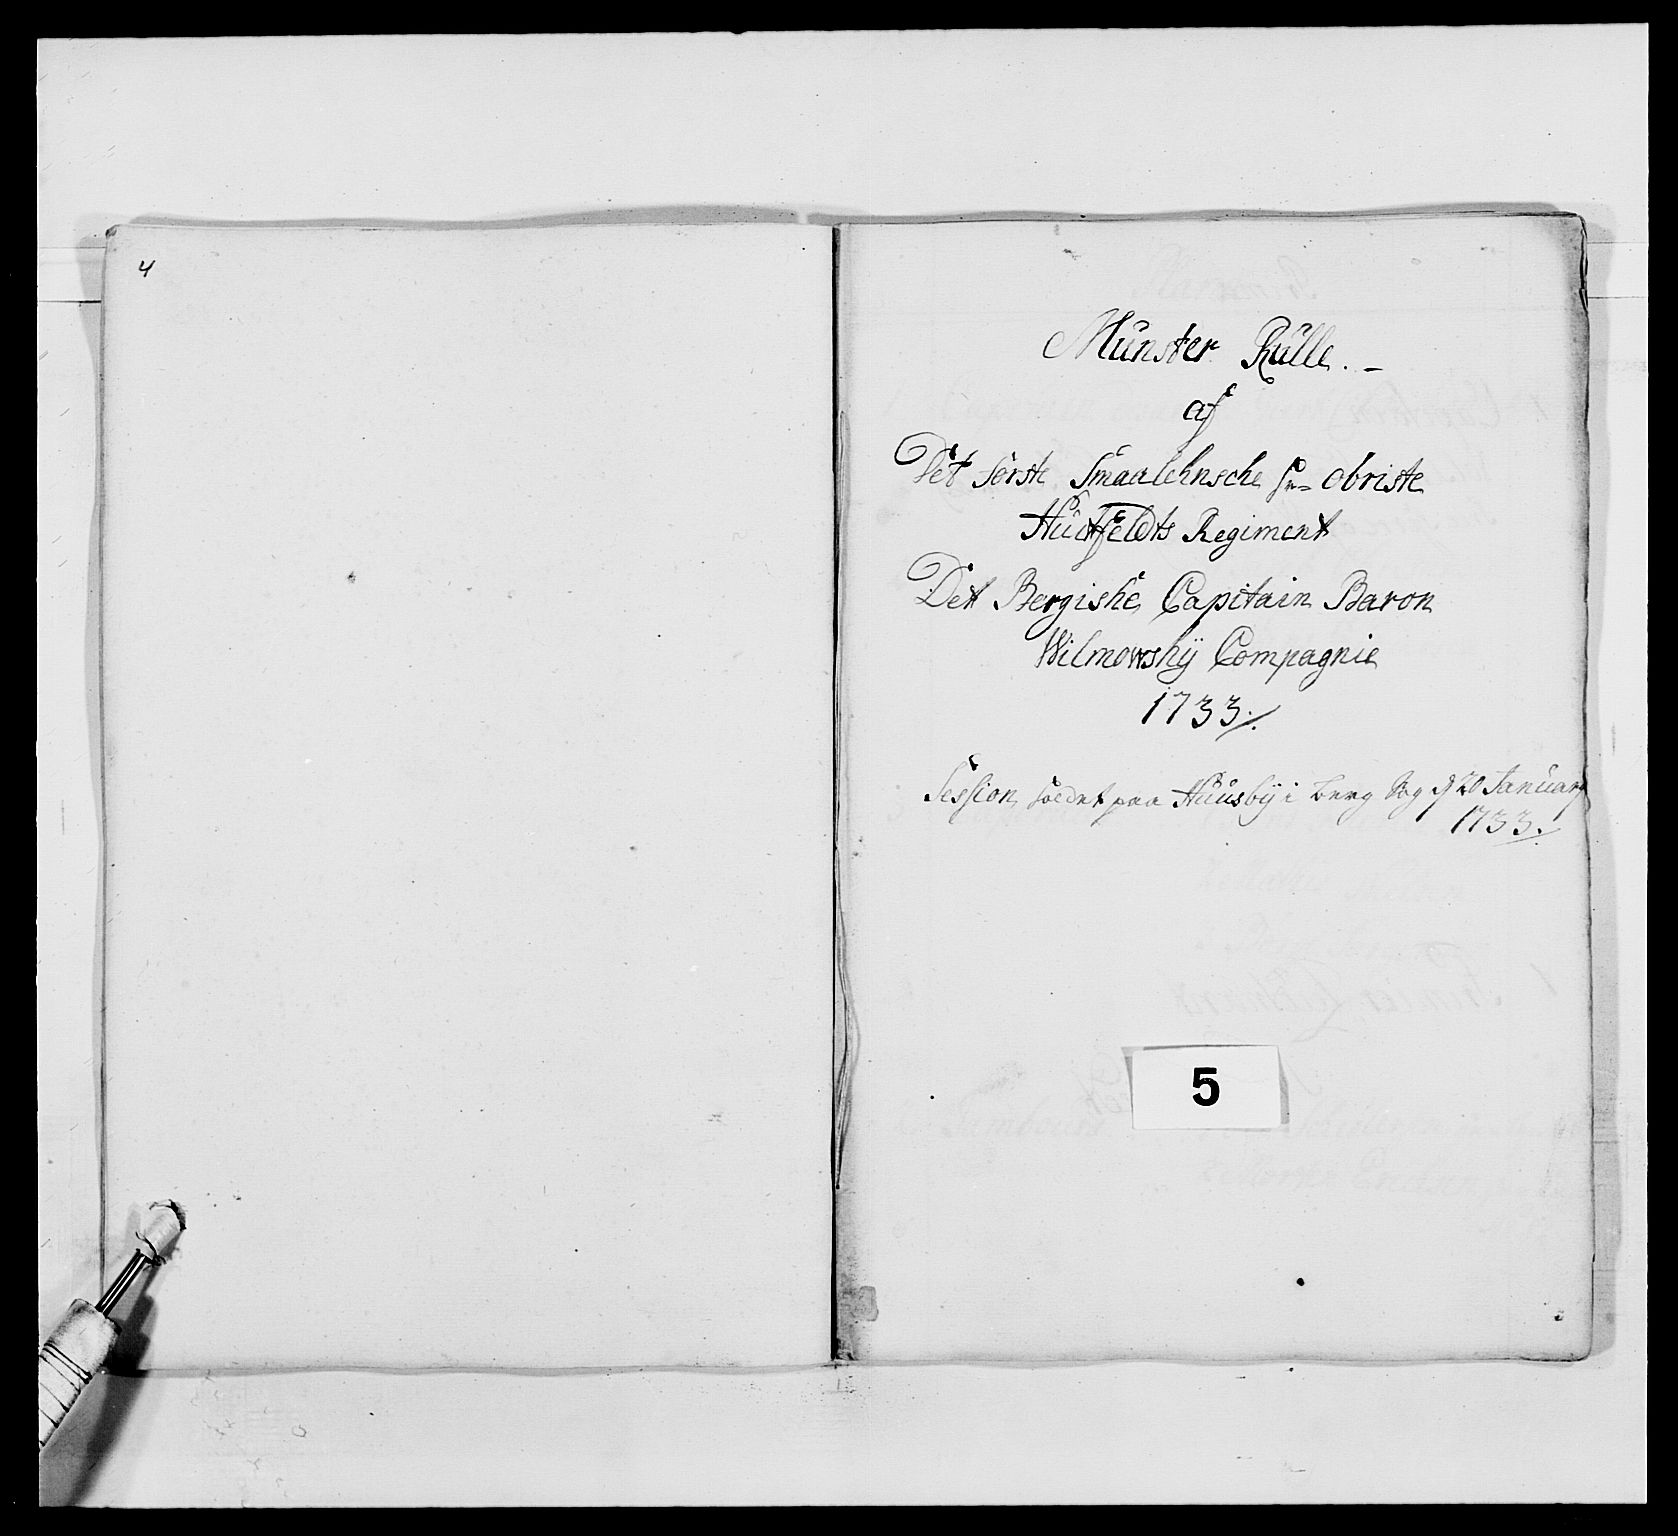 4
Münster Rülle. -
af
Det første Smaalehnsche Hr= Obriste
Huitfeldts Regiment
Det Bergishe Capitain Baron
Wilmowshÿ Compagnie
1733./.
Session, holdet paa Huusbÿ i Berg Sog d 20 January
1733./.
5